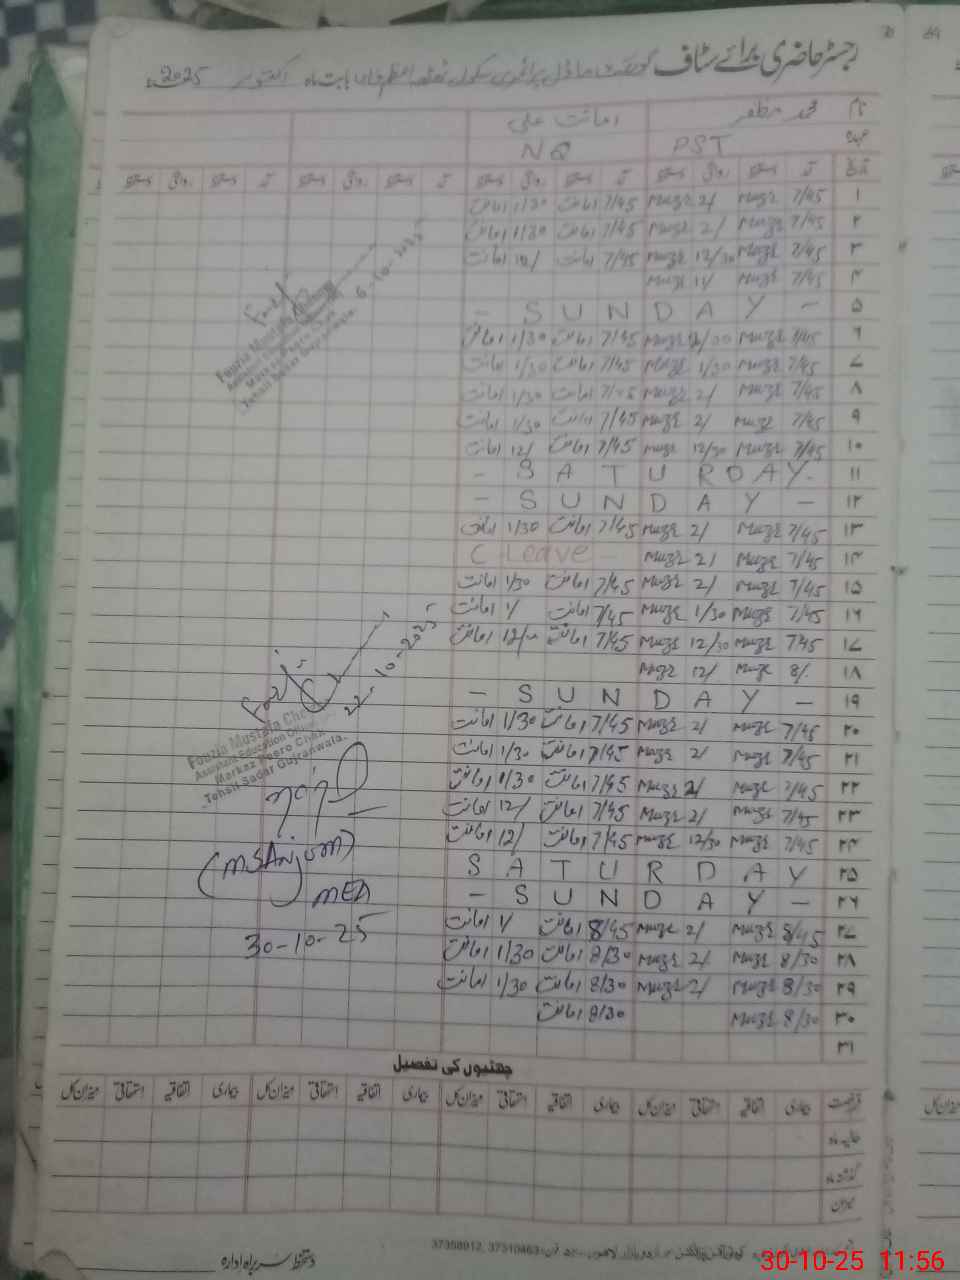 رجسٹر حاضری برائے سٹاف گورنمنٹ ماڈل پرائمری سکول اعظم خان بابت ماہ اکتوبر 2025ء
نام محمد مظفر امانت علی
عہدہ PST NQ
تاریخ آمد دستخط روانگی دستخط آمد دستخط روانگی دستخط آمد دستخط روانگی دستخط آمد دستخط روانگی دستخط
۱ 7/45 Muzr 2/ Muzr 7/45 امانت 1/30 امانت
۲ 7/45 Muzr 2/ Muzr 7/45 امانت 1/30 امانت
۳ 7/45 Muzr 12/30 Muzr 7/45 امانت 12/ امانت
۴ 7/45 Muzr 1/ Muzr
۵ - SUNDAY -
۶ 7/45 Muzr Muzr 7/45 امانت 1/30 امانت
۷ 7/45 Muzr 1/30 Muzr 7/45 امانت 1/30 امانت
۸ 7/45 Muzr 2/ Muzr 7/45 امانت 1/30 امانت
۹ 7/45 Muzr 2/ Muzr 7/45 امانت 1/30 امانت
۱۰ 7/45 Muzr 12/30 Muzr 7/45 امانت 12/ امانت
۱۱ - SATURDAY -
۱۲ - SUNDAY -
۱۳ 7/45 Muzr 2/ Muzr 7/45 امانت 1/30 امانت
۱۴ 7/45 Muzr 2/ Muzr C Leave -
۱۵ 7/45 Muzr 2/ Muzr 7/45 امانت 1/30 امانت
۱۶ 7/45 Muzr 1/30 Muzr 7/45 امانت 1/ امانت
۱۷ 7/45 Muzr 12/30 Muzr 7/45 امانت 12/ امانت
۱۸ 8/ Muzr 12/ Muzr
۱۹ - SUNDAY -
۲۰ 7/45 Muzr 2/ Muzr 7/45 امانت 1/30 امانت
۲۱ 7/45 Muzr 2/ Muzr 7/45 امانت 1/30 امانت
۲۲ 7/45 Muzr 2/ Muzr 7/45 امانت 1/30 امانت
۲۳ 7/45 Muzr 2/ Muzr 7/45 امانت 12/ امانت
۲۴ 7/45 Muzr 12/30 Muzr 7/45 امانت 12/ امانت
۲۵ SATURDAY
۲۶ - SUNDAY -
۲۷ 8/45 Muzr 2/ Muzr 8/45 امانت 1/ امانت
۲۸ 8/30 Muzr 2/ Muzr 8/30 امانت 1/30 امانت
۲۹ 8/30 Muzr 2/ Muzr 8/30 امانت 1/30 امانت
۳۰ 8/30 Muzr 8/30 امانت
۳۱
6-10-2025
Fouzia Mustafa
Assistant Education Officer
Markaz Peero Chak
Tehsil Sadar Gujranwala.
22-10-2025
Fouzia Mustafa
Assistant Education Officer
Markaz Peero Chak
Tehsil Sadar Gujranwala.
(MSAnjum)
MEA
30-10-25
چھٹیوں کی تفصیل
رخصت بیماری اتفاقیہ استحقاقی میزان کل بیماری اتفاقیہ استحقاقی میزان کل بیماری اتفاقیہ استحقاقی میزان کل بیماری اتفاقیہ استحقاقی میزان کل
حالیہ ماہ
گذشتہ ماہ
میزان
37310463, 37358012
دستخط سربراہ ادارہ
30-10-25 11:56